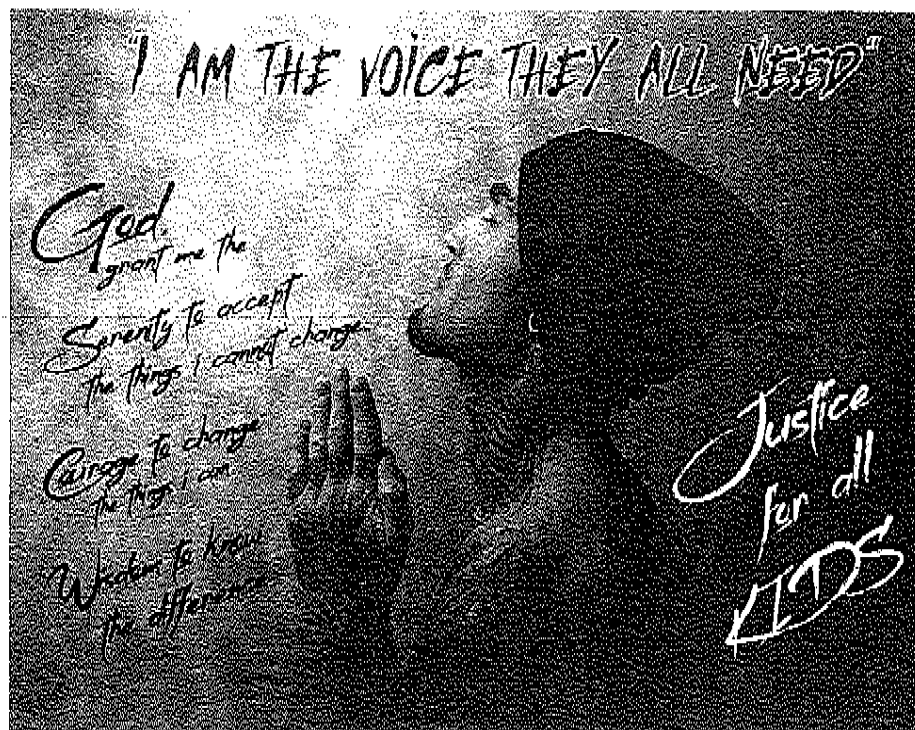 "I AM THE VOICE THEY ALL NEED"
God,
grant me the
Serenity to accept
the things i cannot change
Courage to change
the things i can
Wisdom to know
the difference
Justice
for all
KIDS